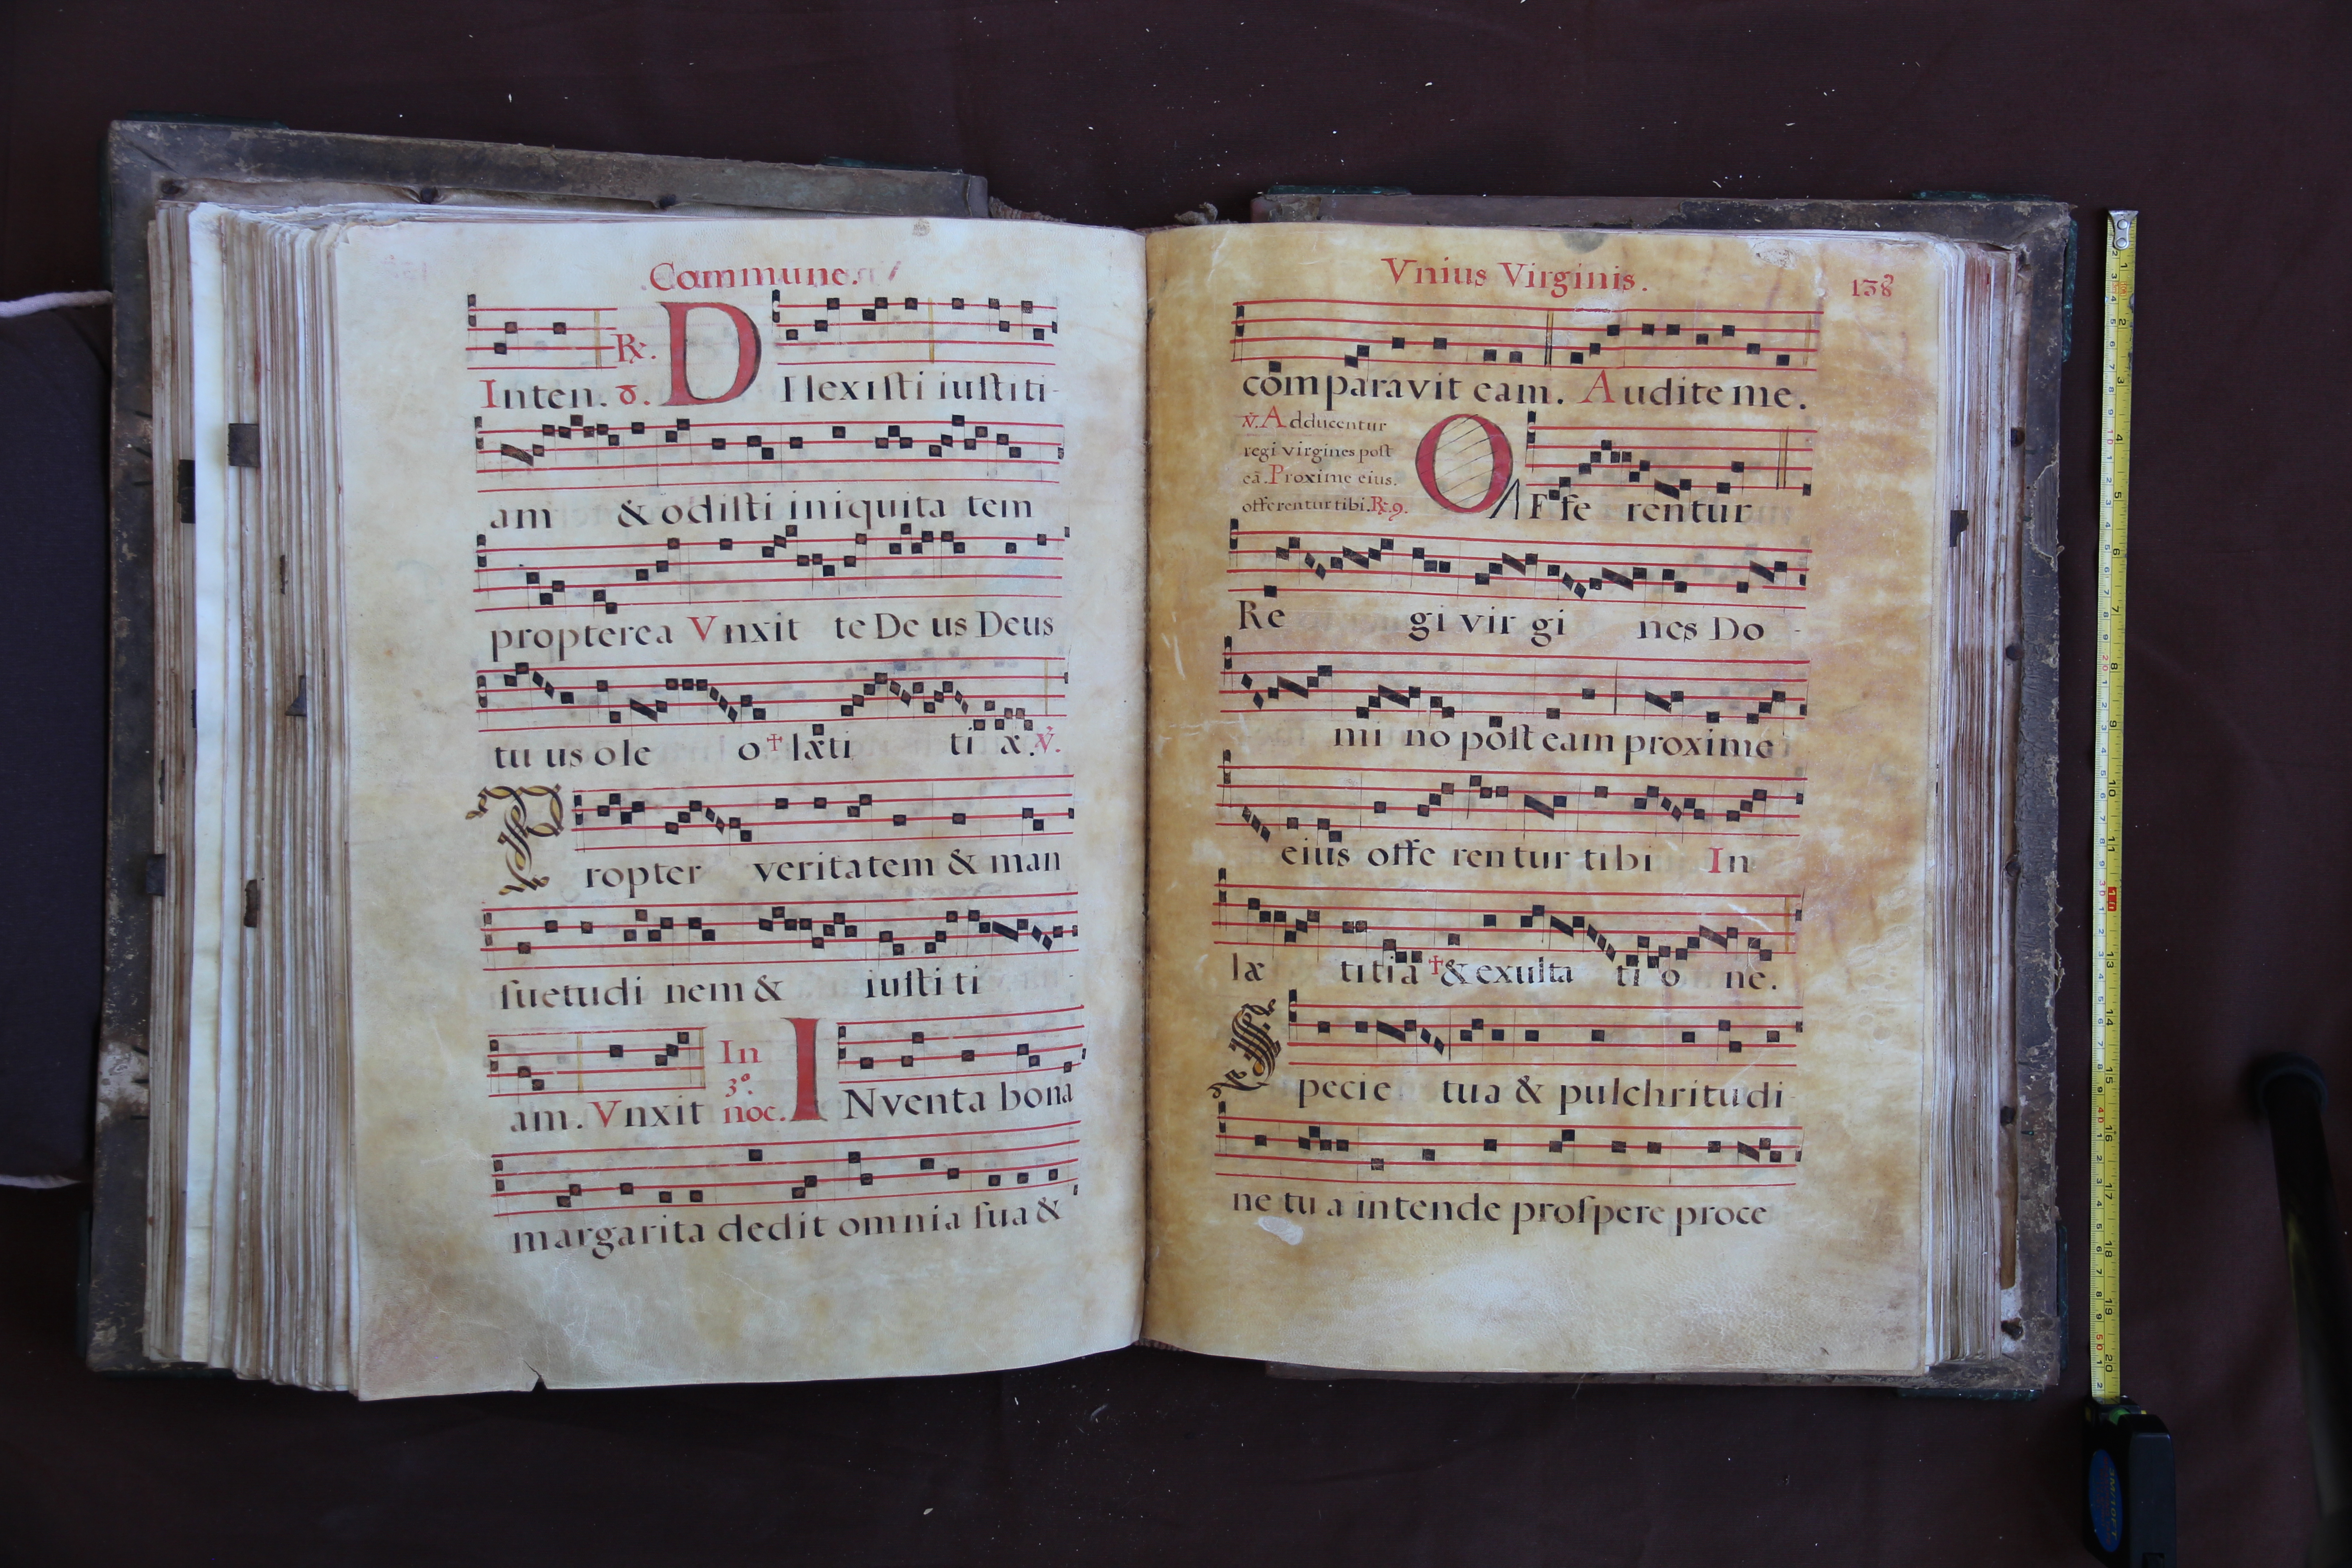 Commune.
℟. D
Inten. 8. Ilexiſti iuſtiti-
am & odiſti iniquita tem
propterea Vnxit te De us Deus
tu us ole o † læti ti æ. ℣.
P
ropter veritatem & man
ſuetudi nem & iuſti ti -
In 3º noc. I
am. Vnxit Nventa bona
margarita dedit omnia ſua &
Vnius Virginis. 138
comparavit eam. Audite me.
℣. Adducentur
regi virgines poſt
eā. Proxime eius.
offerentur tibi. ℟. 9.
O Ffe rentur
Re gi vir gi nes Do -
mi no poſt eam proxime
eius offe ren tur ti bi In
læ titia † & exulta ti o ne.
S
pecie tua & pulchritudi-
ne tu a intende proſpere proce